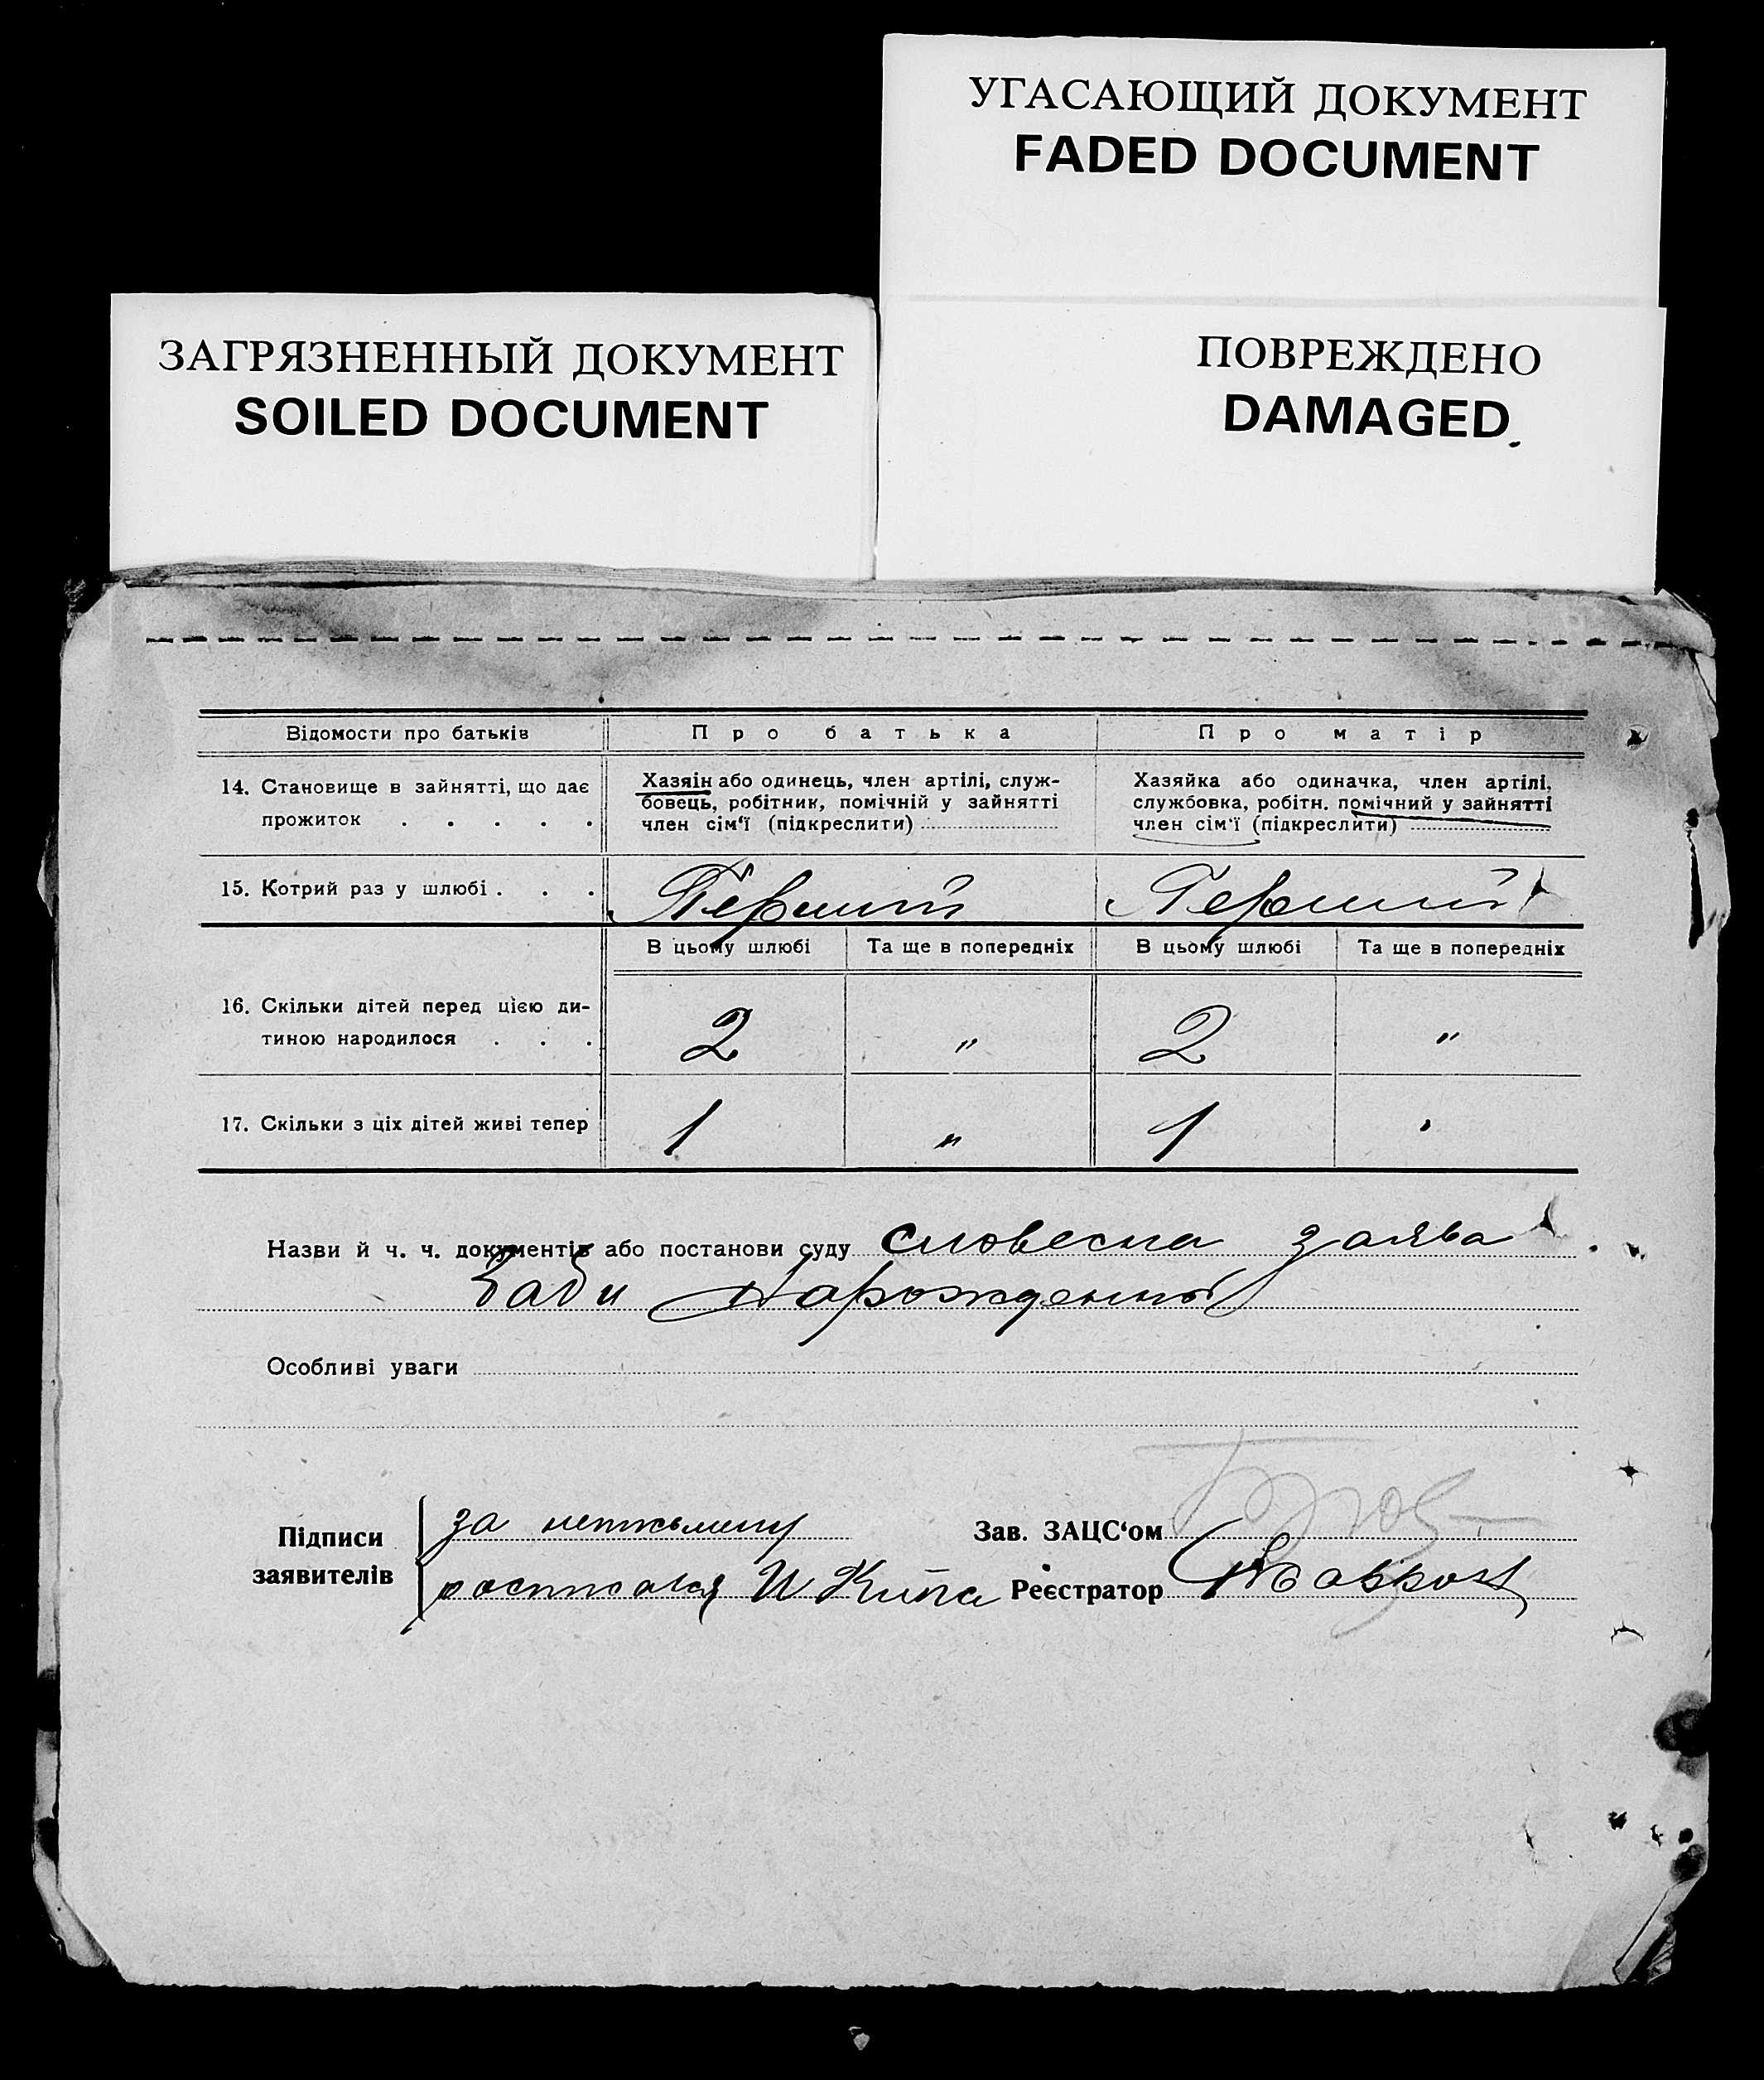 УГАСАЮЩИЙ ДОКУМЕНТ
FADED DOCUMENT
ЗАГРЯЗНЕННЫЙ ДОКУМЕНТ
SOILED DOCUMENT
ПОВРЕЖДЕНО
DAMAGED
Відомости про батьків Про батька Про матір
14. Становище в зайнятті, що дає
прожиток . . . . .
Хазяін або одинець, член артілі, служ-
бовець, робітник, помічній у зайнятті
член сім'ї (підкреслити)
Хазяйка або одиначка, член артілі,
службовка, робітн. помічний у зайнятті
член сім'ї (підкреслити)
15. Котрий раз у шлюбі . . . Перший Перший
В цьому шлюбі Та ще в попередніх В цьому шлюбі Та ще в попередніх
16. Скільки дітей перед цією ди-
тиною народилося . . . 2 " 2 "
17. Скільки з ціх дітей живі тепер 1 " 1
Назви й ч. ч. документів або постанови суду словесна заява
баби
Особливі уваги
Підписи
заявителів
за неписьмену
росписался И
Зав. ЗАЦС'ом
Реєстратор